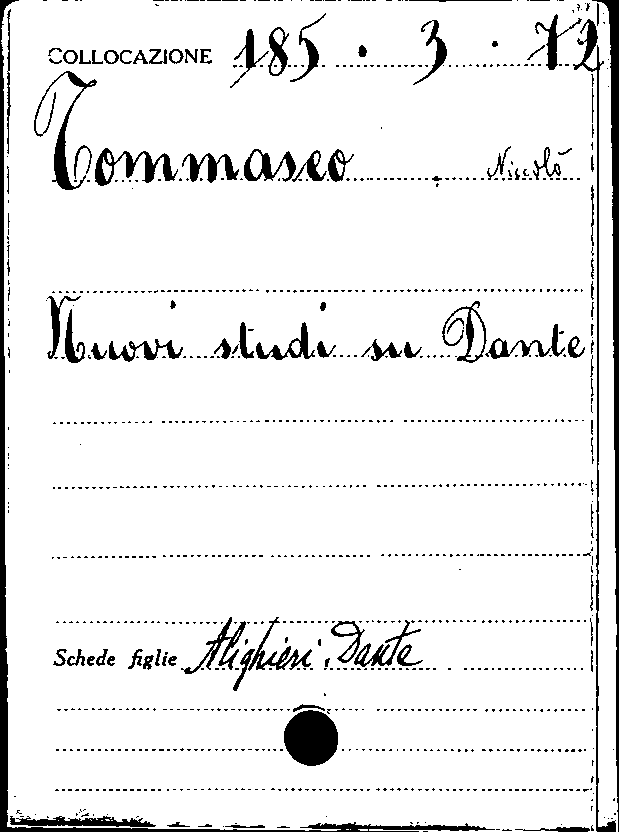 COLLOCAZIONE 185 . 3 . 72
Tommaseo . Niccolò
Nuovi studi su Dante
Schede figlie Alighieri, Dante